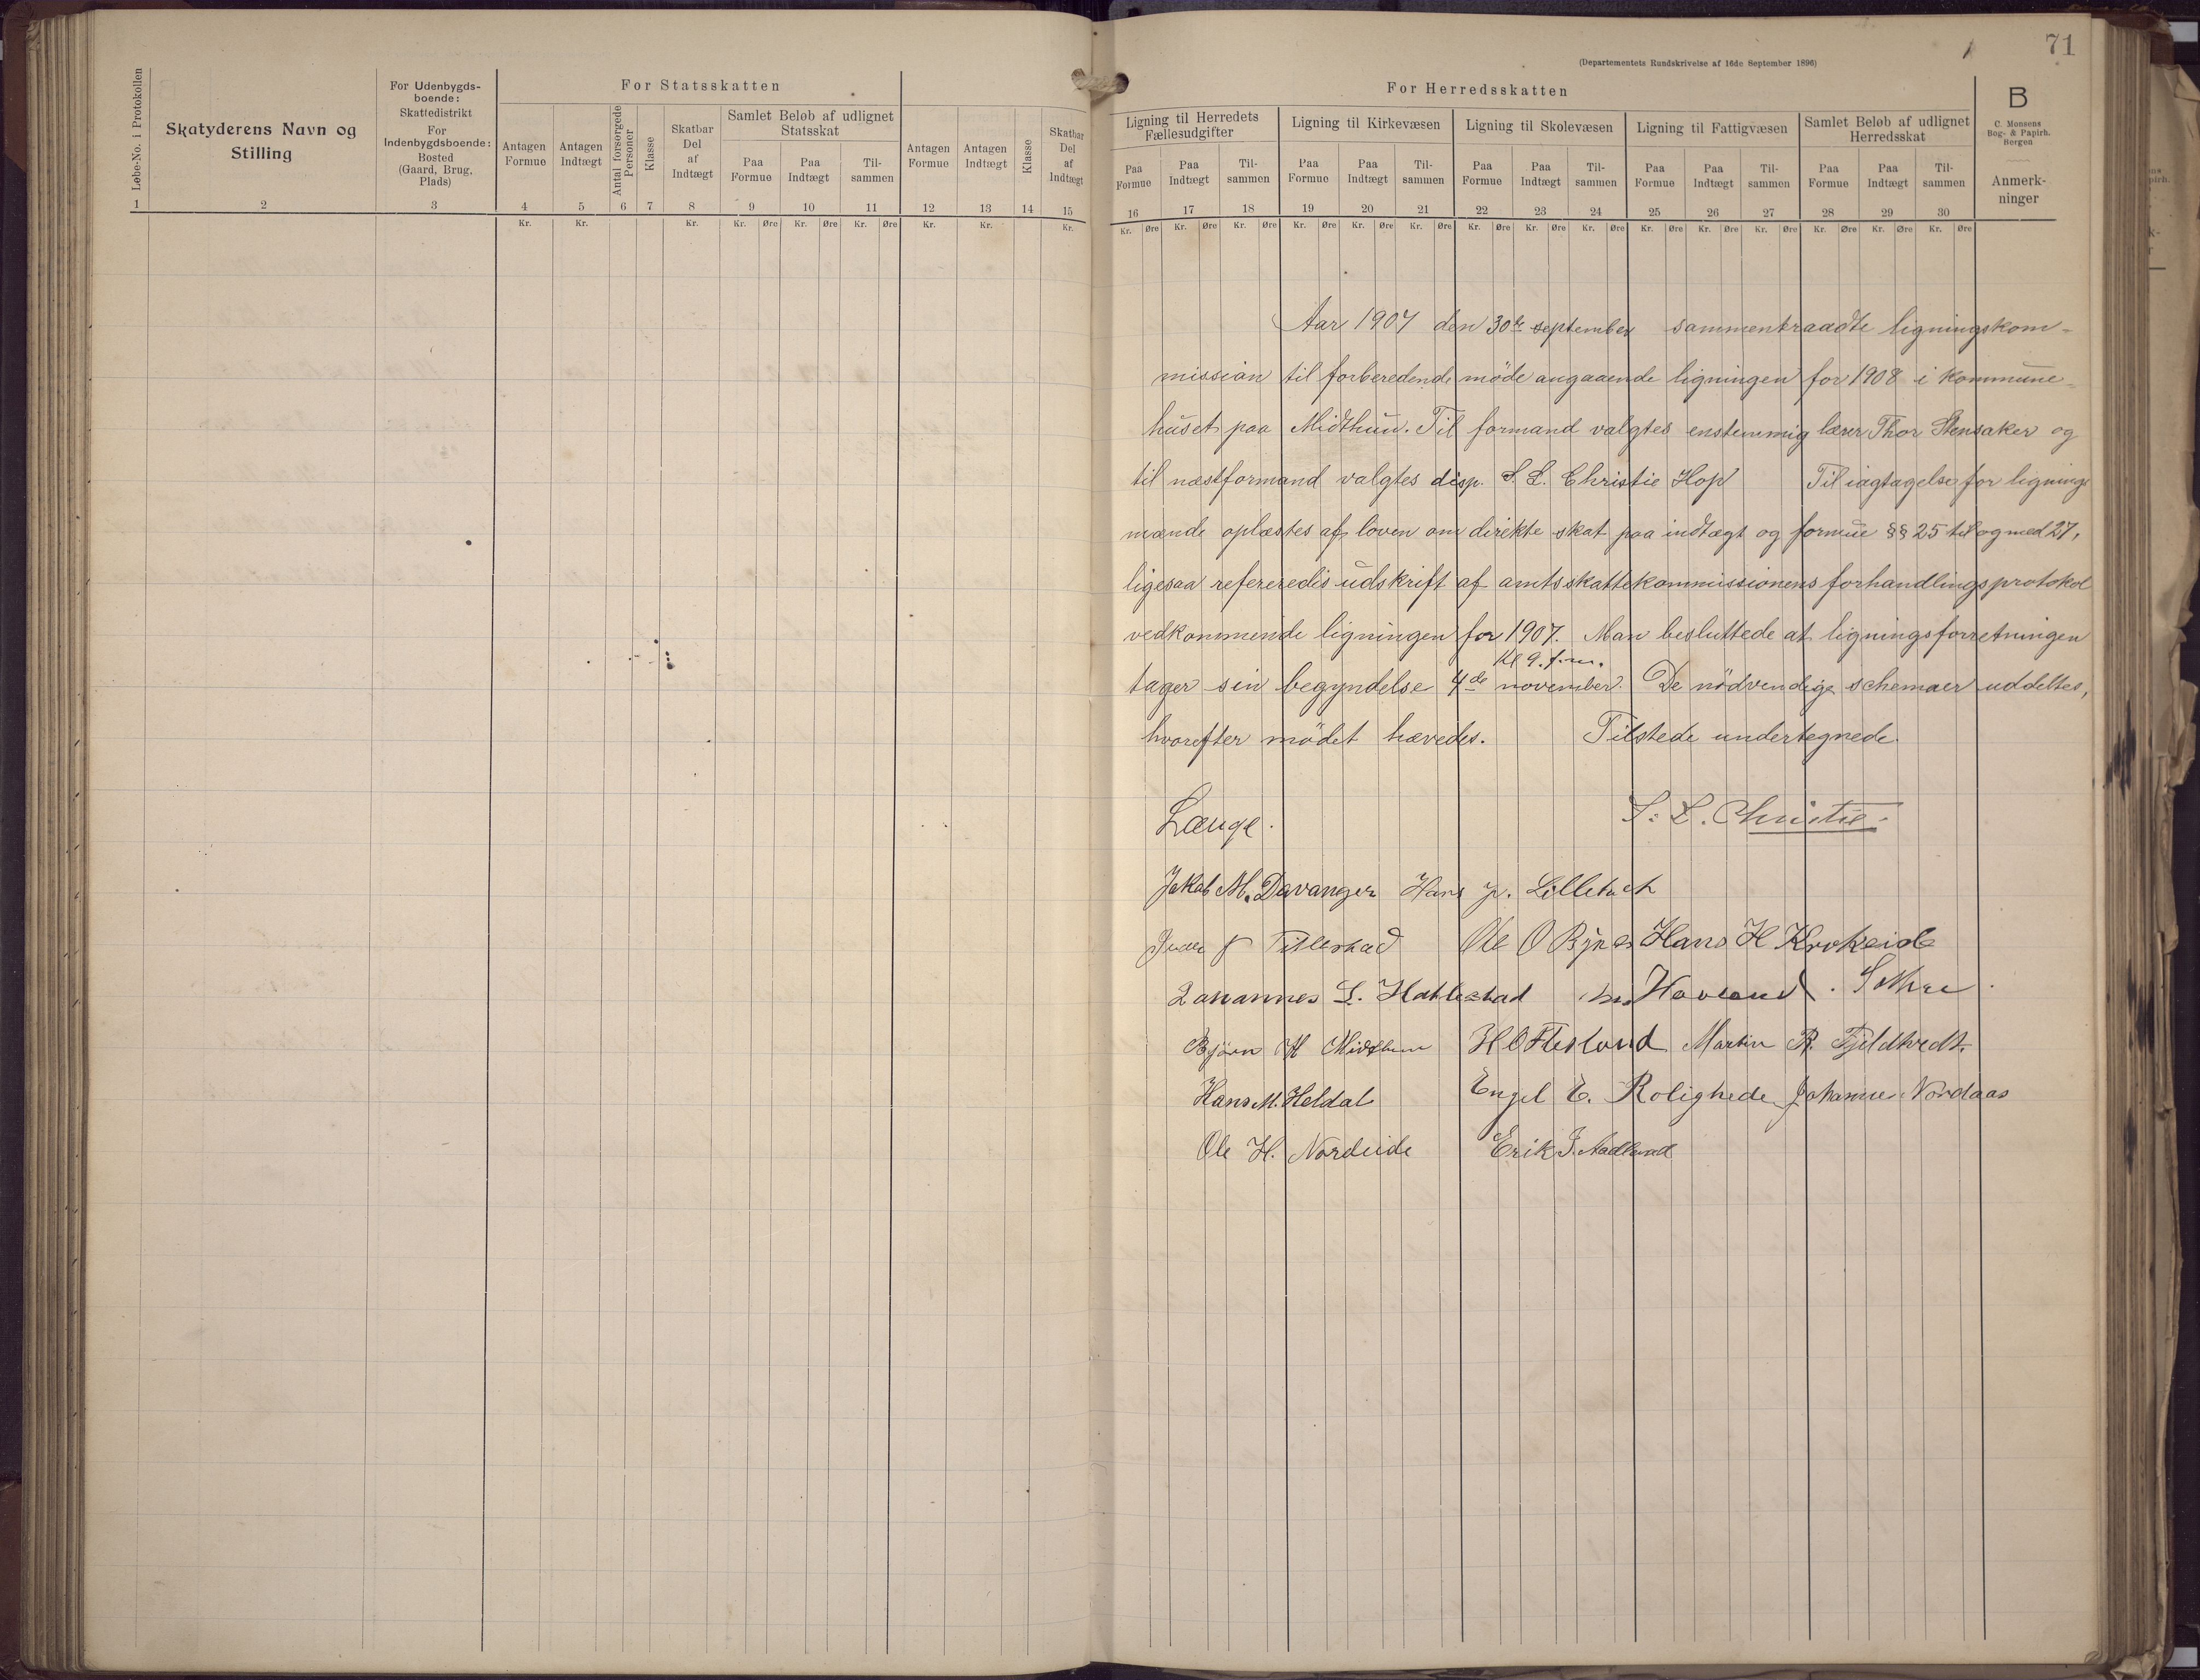 71
(Departementets Rundskrivelse af 16de September 1896)
For Statsskatten
For Herredsskatten
B
C. Monsens
Bog- & Papirh.
Bergen
Anmerk-
ninger
Løbe-No. i Protokollen
Skatyderens Navn og
Stilling
For Udenbygds-
boende:
Skattedistrikt
For
Indenbygdsboende:
Bosted
(Gaard, Brug,
Plads)
Antagen
Formue
Antagen
Indtægt
Antal forsørgede
Personer
Klasse
Skatbar
Del
af
Indtægt
Samlet Beløb af udlignet
Statsskat
Paa
Formue
Paa
Indtægt
Til-
sammen
Antagen
Formue
Antagen
Indtægt
Klasse
Skatbar
Del
af
Indtægt
Ligning til Herredets
Fællesudgifter
Paa
Formue
Paa
Indtægt
Til-
sammen
Ligning til Kirkevæsen
Paa
Formue
Paa
Indtægt
Til-
sammen
Ligning til Skolevæsen
Paa
Formue
Paa
Indtægt
Til-
sammen
Ligning til Fattigvæsen
Paa
Formue
Paa
Indtægt
Til-
sammen
Samlet Beløb af udlignet
Herredsskat
Paa
Formue
Paa
Indtægt
Til-
sammen
1 2 3 4 5 6 7 8 9 10 11 12 13 14 15 16 17 18 19 20 21 22 23 24 25 26 27 28 29 30
Kr. Kr. Kr. Kr. Øre Kr. Øre Kr. Øre Kr. Kr. Kr. Kr. Øre Kr. Øre Kr. Øre Kr. Øre Kr. Øre Kr. Øre Kr. Øre Kr. Øre Kr. Øre Kr. Øre Kr. Øre Kr. Øre Kr. Øre Kr. Øre Kr. Øre
Aar 1907 den 30te september sammentraadte ligningskom-
mission til forberedende møde angaaende ligningen for 1908 i kommune-
huset paa Midthun. Til formand valgtes enstemmig lærer Thor Stensaker og
til næstformand valgtes disp. S. L. Christie Hop Til iagtagelse for lignings
mænde oplæstes af loven om direkte skat paa indtægt og formue §§ 25 til og med 27,
ligesaa refereredis udskrift af amtsskattekommissionens forhandlingsprotokol
vedkommende ligningen for 1907. Man besluttede at ligningsforretningen
kl 9. f.m.
tager sin begyndelse 4de november. De nødvendige schemaer uddeltes,
hvorefter mødet hævedes. Tilstede undertegnede.
S. L. Christie
Jakob M. Davanger Hans J. Lilletvedt
Tillerskad Ole O Hans H Krokeide
Johannes L. Hatlestad Hovland
Bjørn H Midthun H O Flesland Martin R. Fjeldtvedt
Hans M. Heldal Engel E. Rolighede Johannes Nordaas
Ole H. Nordeide Erik J. Aadland